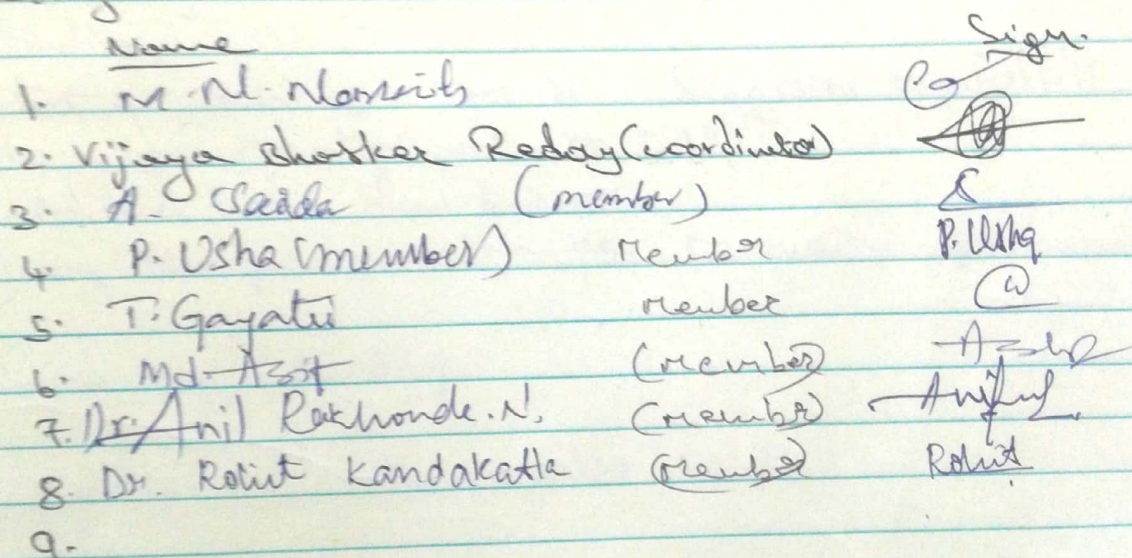 Name Sign.
1. M. N.
2. Vijaya Bhasker Reddy (coordinator)
3. A. Saida (member)
4. P. Usha (member) Member P. Usha
5. T. Gayatri member
6. Md. Asif (member)
7. Dr. Anil Rakhonde. N. (member)
8. Dr. Rohit Kandakatla (member) Rohit
9.